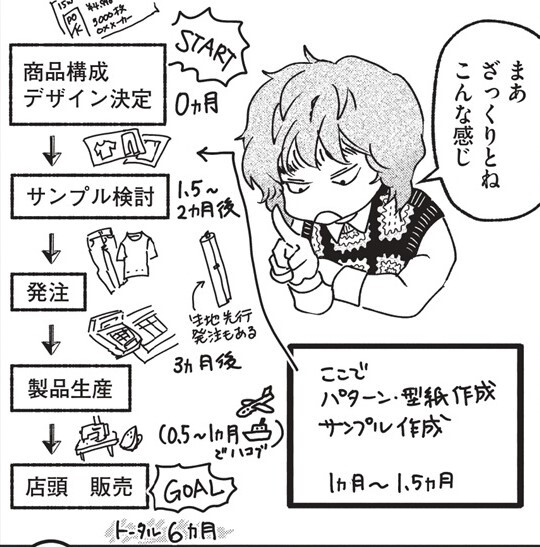 15w
¥4.990
3000枚
○××メーカー
START
商品構成
デザイン決定
0ヵ月
サンプル検討
1.5～
2ヵ月後
発注
生地先行
発注もある
3ヵ月後
製品生産
(0.5～1ヵ月
でハコブ)
店頭 販売
GOAL
トータル6ヵ月
まあ
ざっくりとね
こんな感じ
ここで
パターン・型紙作成
サンプル作成
1ヵ月～1.5ヵ月